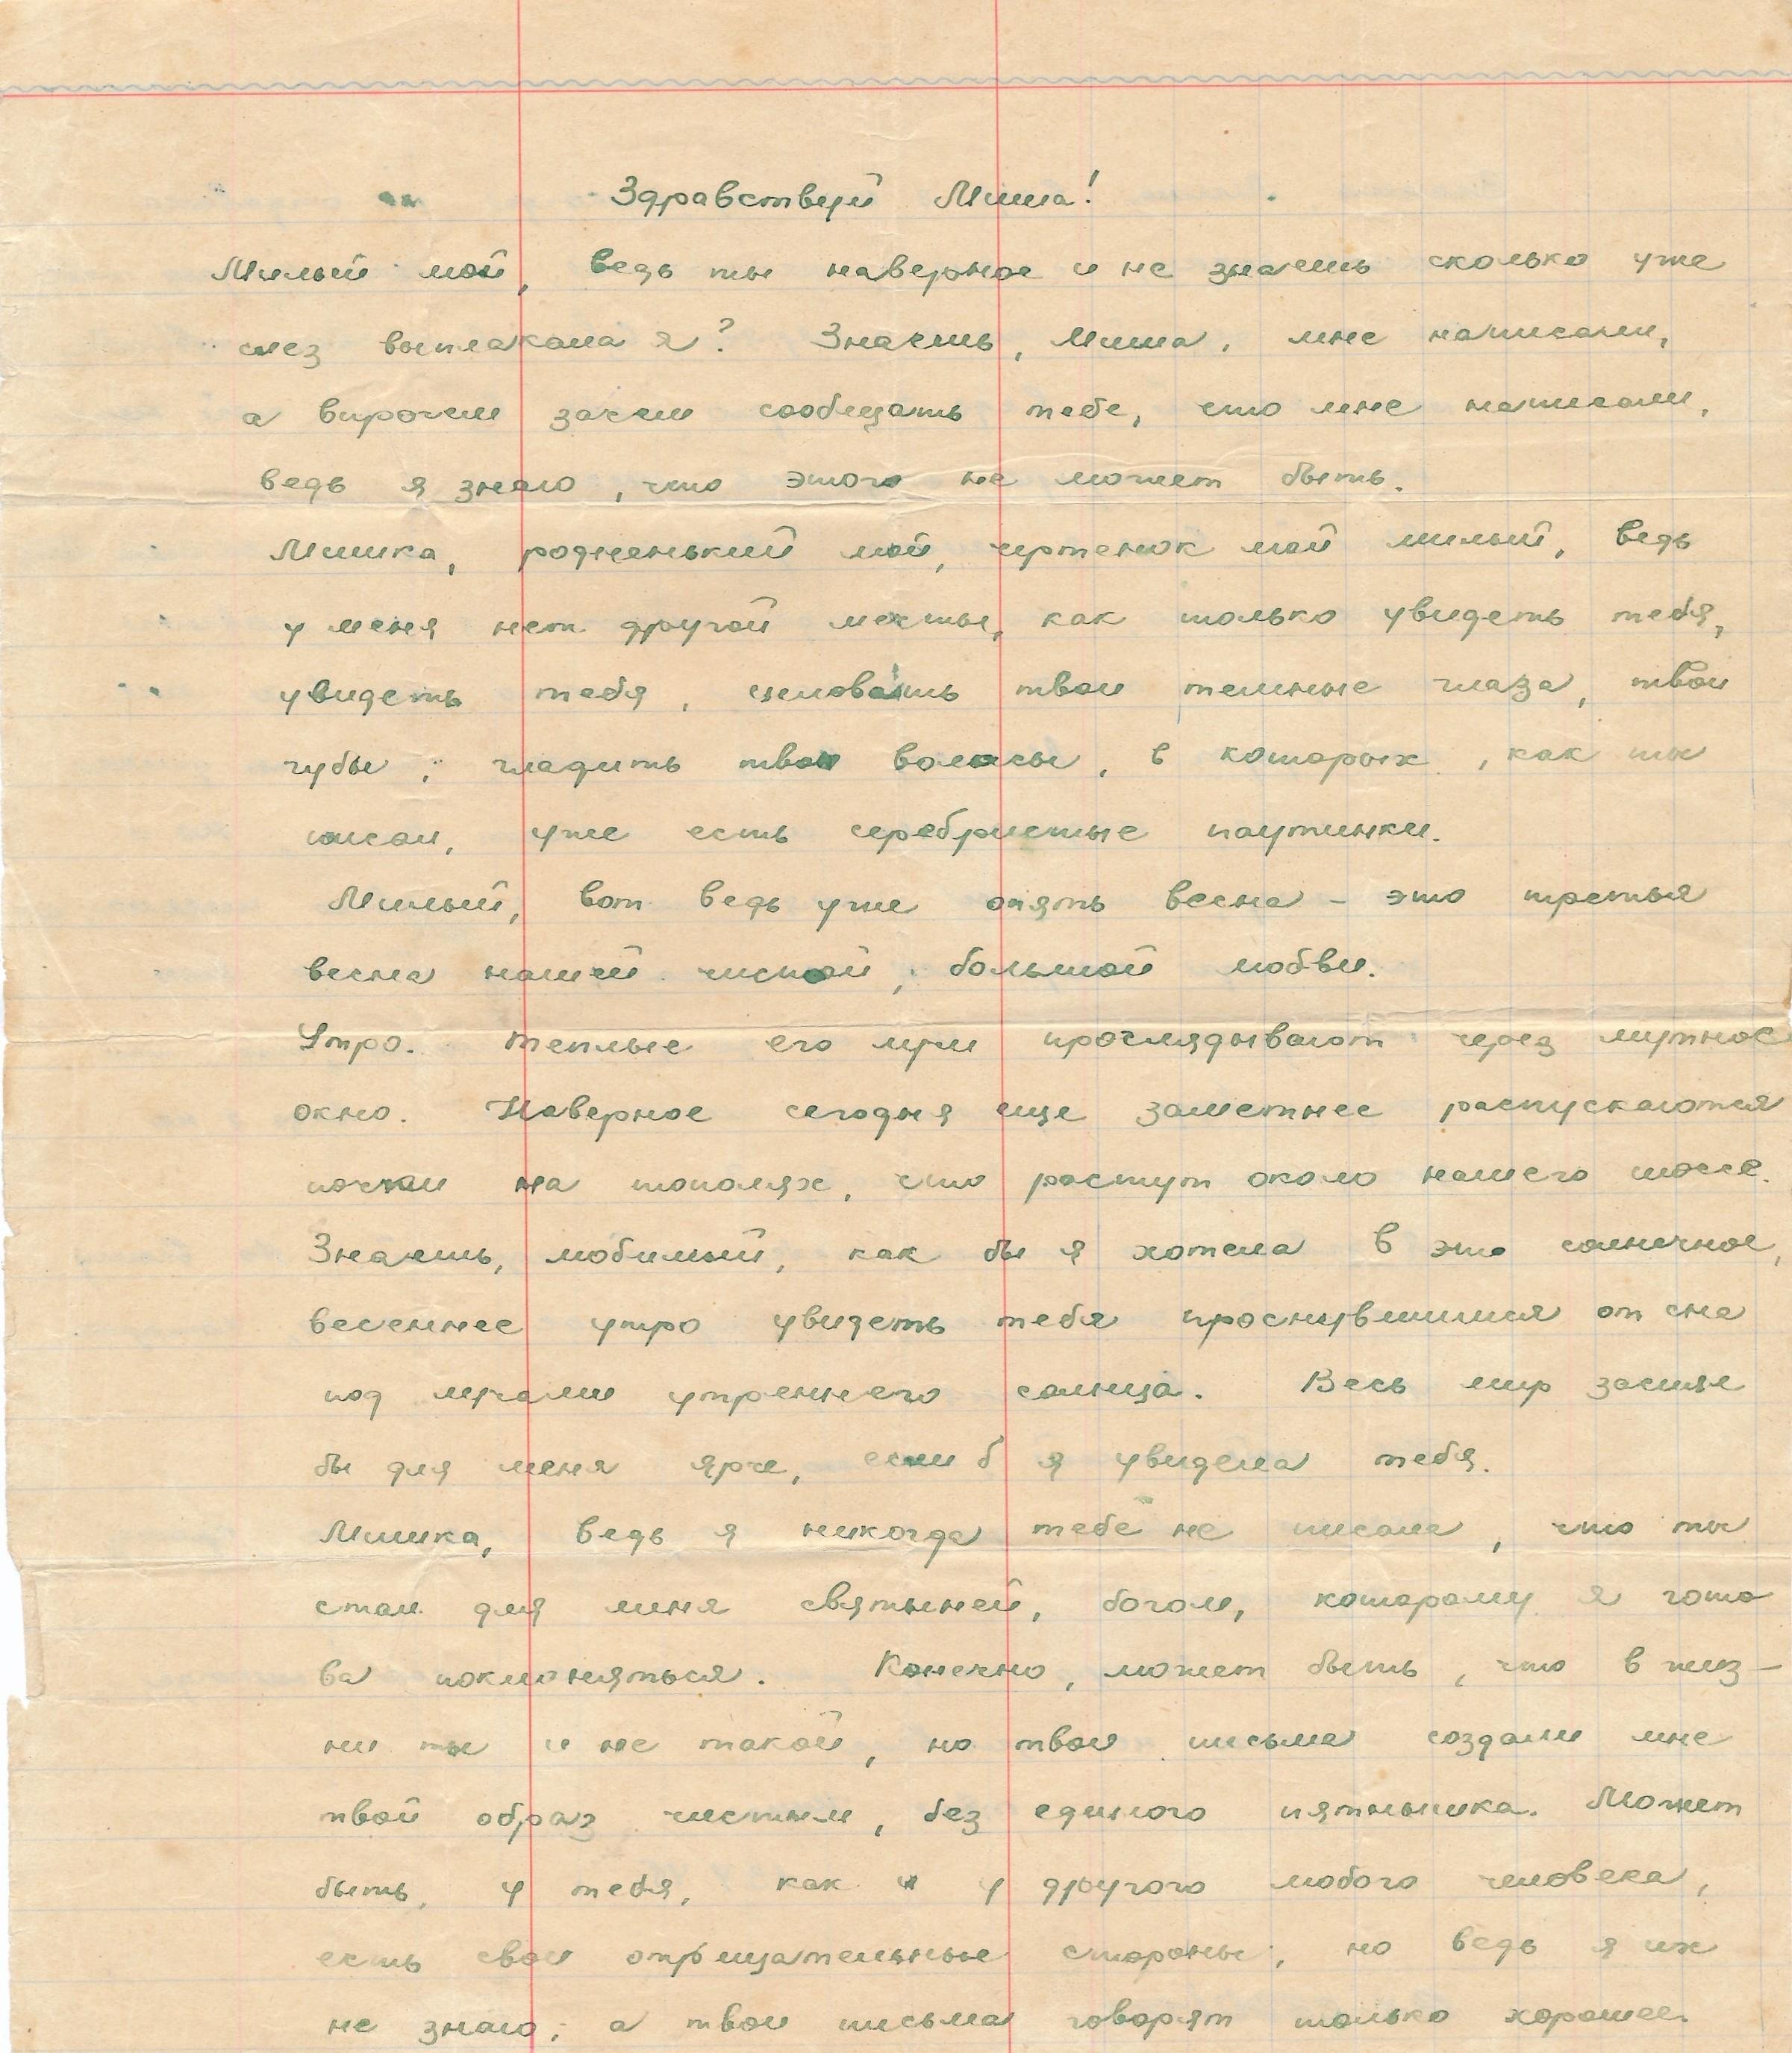 Здравствуй Миша!
Милый мой, ведь ты наверное и не знаешь сколько уже
слез выплакала я? Знаешь, Миша, мне написали,
а впрочем зачем сообщать тебе, что мне написали,
ведь я знаю, что этого не может быть.
Мишка, родненький мой, чертенок мой милый, ведь
у меня нет другой мечты, как только увидеть тебя,
увидеть тебя, целовать твои темные глаза, твои
губы, гладить твои волосы, в которых, как ты
писал, уже есть серебристые паутинки.
Милый, вот ведь уже опять весна – это третья
весна нашей чистой, большой любви.
Утро. Теплые его лучи проглядывают через мутное
окно. Наверное сегодня еще заметнее распускаются
почки на тополях, что растут около нашего шоссе.
Знаешь, любимый, как бы я хотела в это солнечное,
весеннее утро увидеть тебя проснувшимся от сна
под лучами утреннего солнца. Весь мир засиял
бы для меня ярче, если б я увидела тебя.
Мишка, ведь я никогда тебе не писала, что ты
стал для меня святыней, богом, которому я гото
ва поклоняться. Конечно, может быть, что в жиз-
ни ты и не такой, но твои письма создали мне
твой образ чистым, без единого пятнышка. Может
быть, у тебя, как и у другого любого человека,
есть свои отрицательные стороны, но ведь я их
не знаю, а твои письма говорят только хорошее.